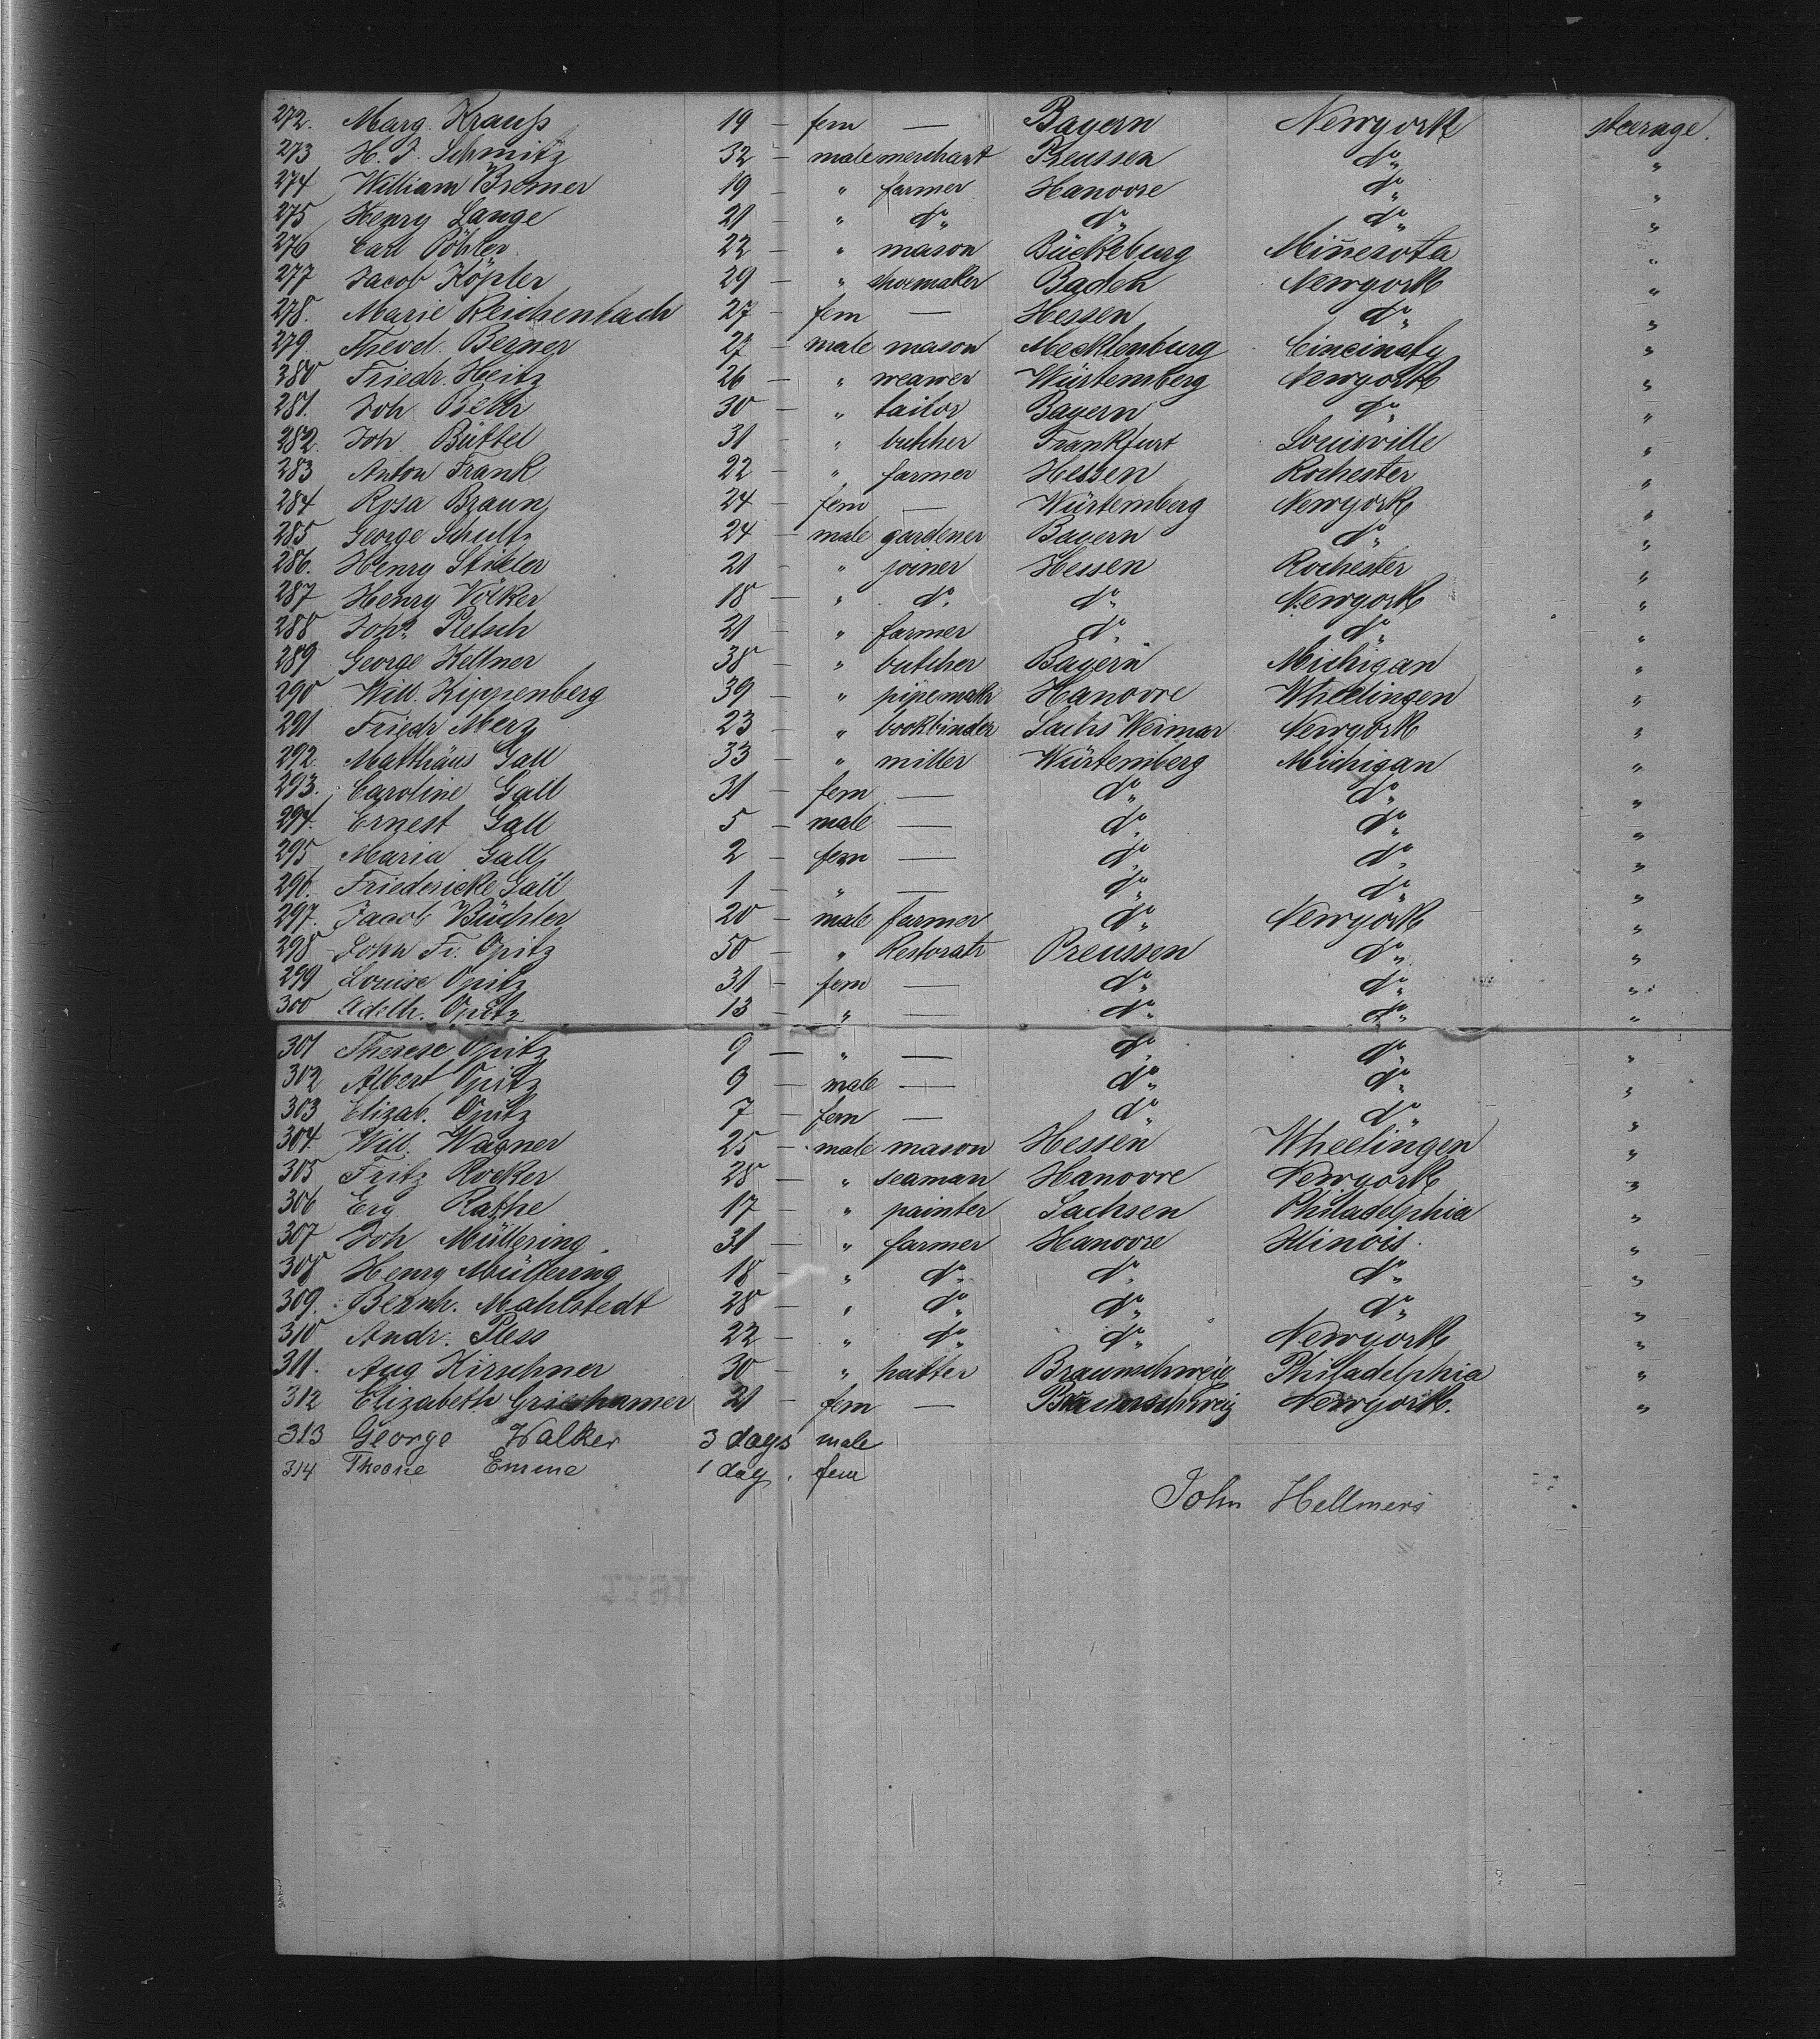 272. Marg. Krauß 19 — fem — Bayern Newyork steerage.
273 H. J. Schmitz 32 — male merchant Preussen do "
274 William Bremer 19 — " farmer Hanovre do "
275 Henry Lange 21 — " do do do "
276 Carl Pöhler 22 — " mason Bückeburg Minnesota "
277 Jacob Köpler 29 — " shoemaker Baden Newyork "
278. Marie Reichenbach 27 — fem — Hessen do "
279 Theod. Berner 27 — male mason Mecklenburg Cincinaty "
380 Friedr. Heitz 26 — " weawer Würtemberg Newyork "
281. Joh 30 — " tailor Bayern do "
282. Joh Büttel 31 — " butcher Frankfurt Louisville "
283 Anton Frank 22 — " farmer Hessen Rochester "
284 Rosa Braun 24 — fem — Würtemberg Newyork "
285 George Schultz 24 — male gardener Bayern do "
286. Henry Stickler 21 — " joiner Hessen Rochester "
287 Henry Völker 18 — " do do Newyork "
288 Johs. Pletsch 21 — " farmer do do "
289 George Kellner 38 — " butcher Bayern Michigan "
290 Will. Kippenberg 39 — " pipemakr Hanovre Wheelingen "
291 Friedr Merz 23 — " bookbinder Sachs Weimar Newyork "
292. Matthäus Gall 33 — " miller Würtemberg Michigan "
293. Caroline Gall 31 — fem — do do "
294. Ernest Gall 5 — male — do do "
295 Maria Gall 2 — fem — do do "
296. Friedericke Gall 1 — " — do do "
297. Jacob Büchler 20 — male farmer do Newyork "
298 John Fr. Opitz 50 — " Restoratr Preussen do "
299 Louise Opitz 31 — fem — do do "
300 Adelh. Opitz 13 — " — do do "
301 Therese Opitz 9 — " — do do "
302 Albert Opitz 9 — male — do do "
303 Elizab. Opitz 7 — fem — do do "
304 Will. Wagner 25 — male mason Hessen Wheelingen "
305 Fritz Rocker 28 — " seaman Hanovre Newyork "
306 Erg Rathe 17 — " painter Sachsen Philadelphia "
307 Joh Müllering 31 — " farmer Hanovre Illinois. "
308 Henry Müllering 18 — " do do do "
309. Bernh. Mahlstedt 28 — " do do do "
310 Andr. Pless 22 — " do do Newyork "
311. Aug Kirschner 30 — " hatter Braunschweig Philadelphia "
312 Elizabeth Grieshamer 21 — fem — Braunschweig Newyork. "
313 George Walker 3 days male
314 Emme 1 day. fem
John Hellmers